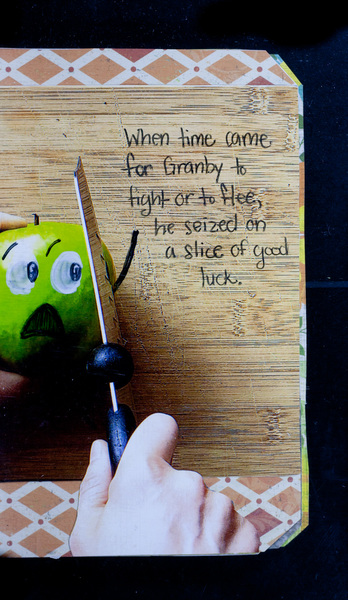 When time came
for Granby to
fight or to flee,
he seized on
a slice of good
luck.